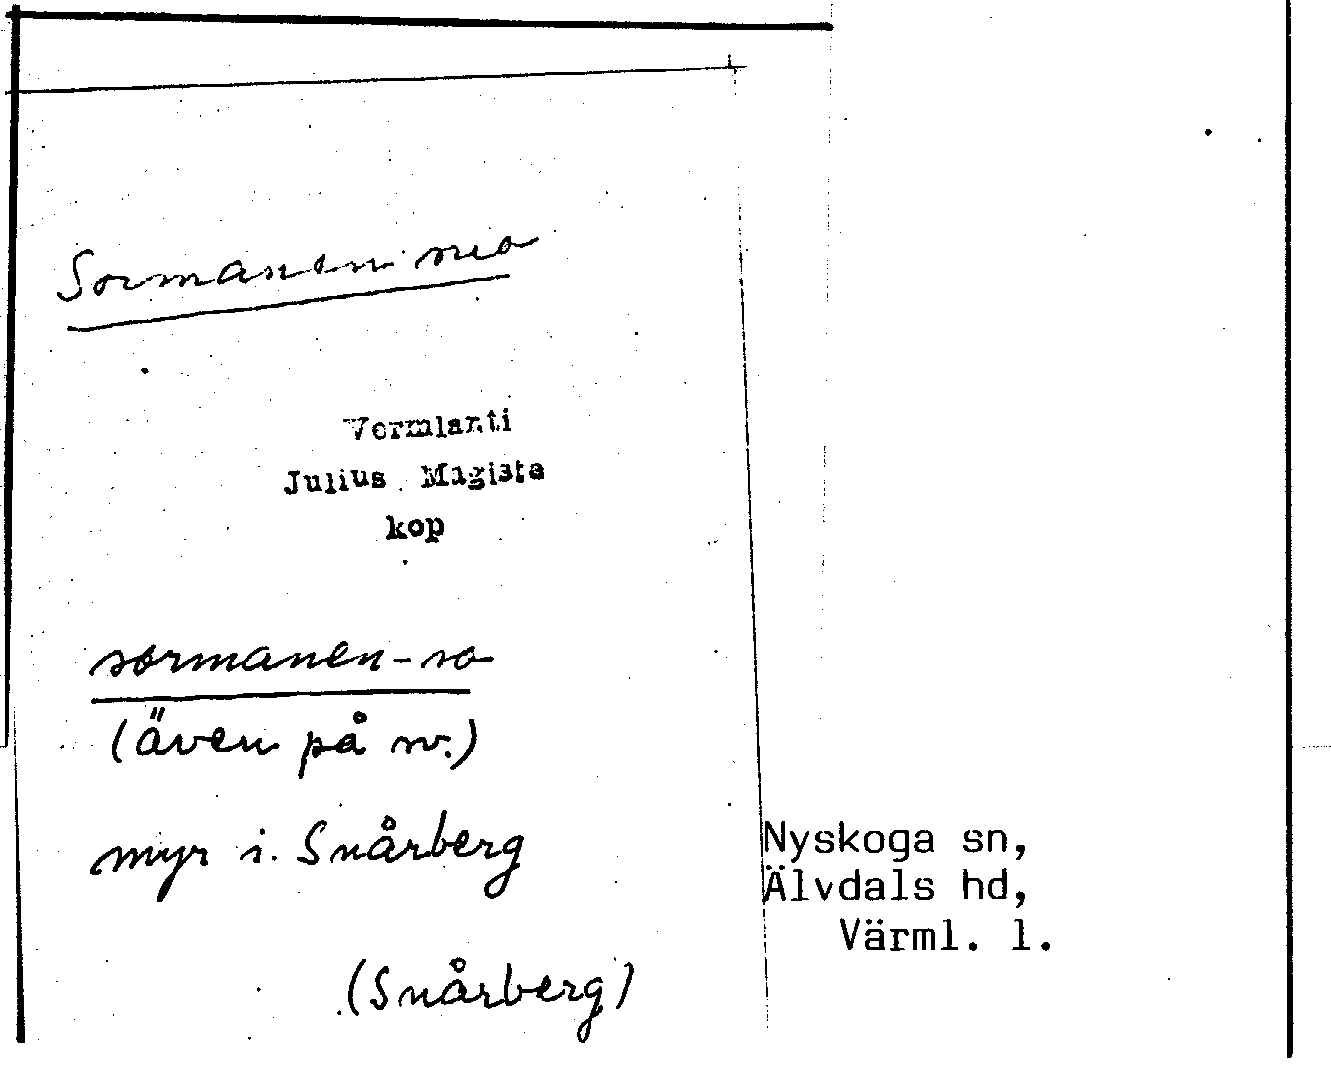 Sormanen suo
Vermlanti
Julius Mägiste
kop
sormanen-so
(även på sv.)
myr i. Snårberg
(Snårberg)
Nyskoga sn,
Älvdals hd,
Värml. l.